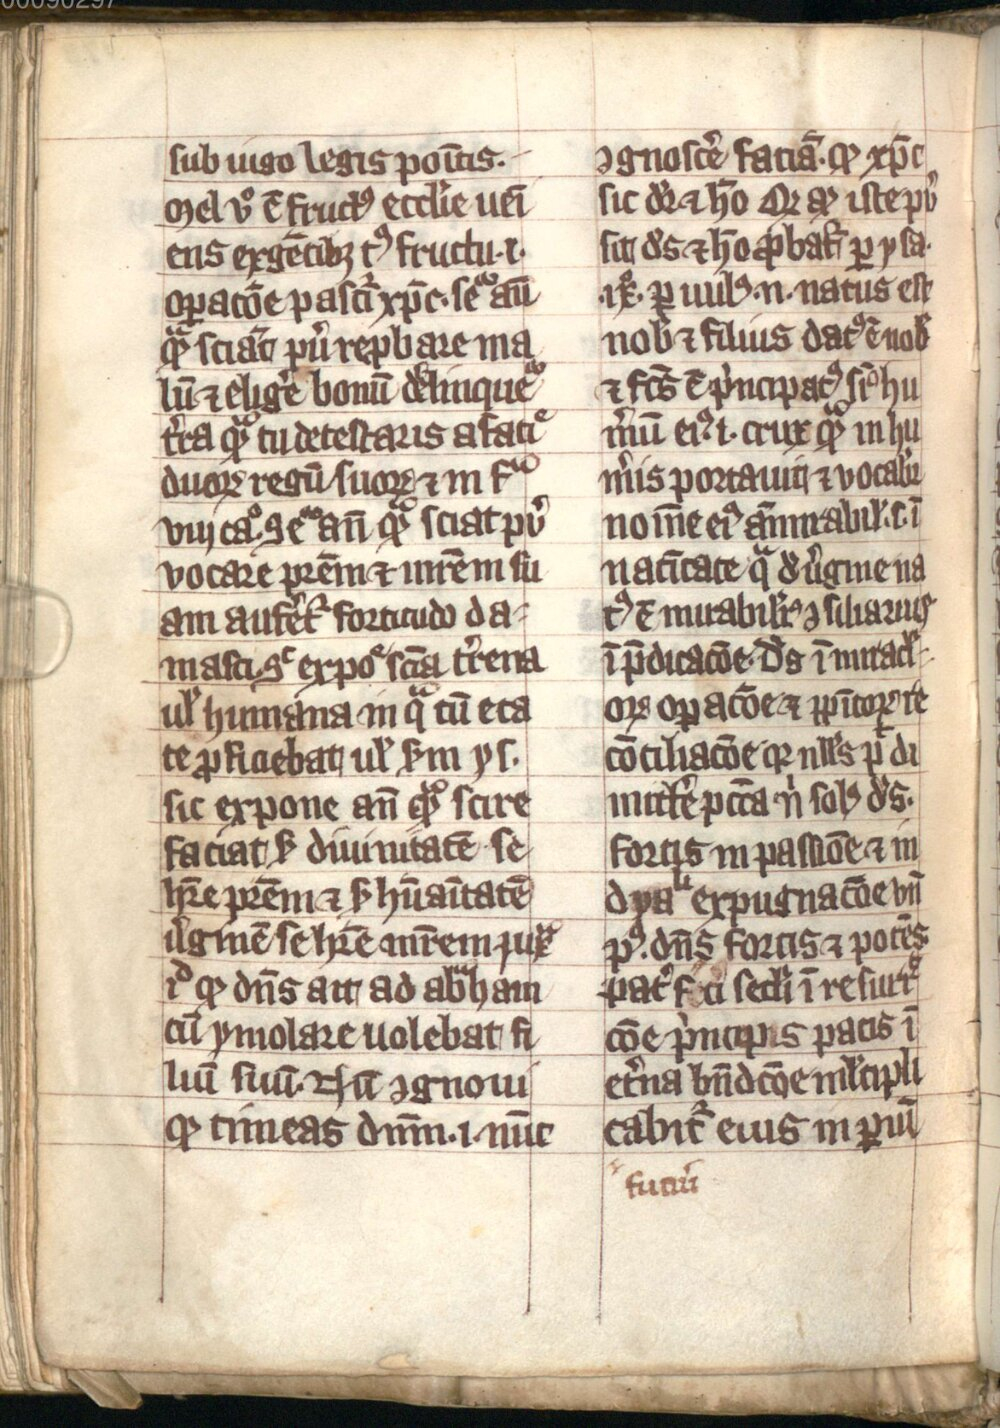 00090297
sub iugo legis poītis.
Mel v̊ ē fruct⁹ eccl̄ie uēi
ens exgētibꝫ t⁹ fructu .i.
opacōe pascit̄ xp̄c. 
qͣ sciat pu̾ rep̱bare ma
lū ⁊ elige̾ bonū 
t̾ra q̄ tu detestaris a facie
duoꝝ regū suoꝝ ⁊ in
viij ca°. añ qͣ sciat pu̾
vocare pr̄em ⁊ mr̄em su
am aufe̾t᷑ fortitudo da-
masci. expoᵉ scīa t̾rena
ul̾ humana in qͣ cū eta
te ꝓficiebat ul̾ ẜm ys.
sic expone añ qͣ scire
faciat ẜ diuinitatē se
hr̄e pr̄em ⁊ ẜ hūaītatē
u̾ginē se hr̄e mr̄em iuxͣ
iᵈ qͦ dn̄s ait ad abͣham
cū ymolare uolebat fi
liū suū. ꝯgnoui
qͦ timeas dn̄m .i. nūc
ꝯgnosce̾ faciā. qͦ xp̄c
sic ds̾ ⁊ hō qͦ iste pu̾
sit ds̾ ⁊ hō ꝓbat᷑ ꝑ ysa.
.ix. ꝑuulꝰ .n. natus est
nob̾ ⁊ filius dat⁹ ē nob̾
⁊ fc̄s ē pͥncipat⁹ sr̾ hu
m̾ū ei⁹ .i. crux qͣ in hu
m̾is portauit ⁊ vocabit̾
nom̄e ei⁹ am̄irabil̾ .s. ī
natīitate qͣ de u̾gine na
t⁹ ē mirabil̾r ꝯsiliarius
ī p̄dicacōe. Ds̾ ī miracl̾-
oꝝ opacōe ⁊ pn̄itoꝝ re
cōciliacōe qꝛ nll̾s pt̾ di
mitte̾ pcc̄a n̾ solꝰ ds̾.
fortis in passiōe ⁊ in
dyaˡⁱ expugnacōe vn̄
p⁹. dn̄s fortis ⁊ potēs
pat̾ fͥ ci secl̾i ī resurr̾
cōe pͥnceps pacis ī
et̾na bn̄dcōe ml̾tipli
cabit᷑ eius imꝑiū
futuri